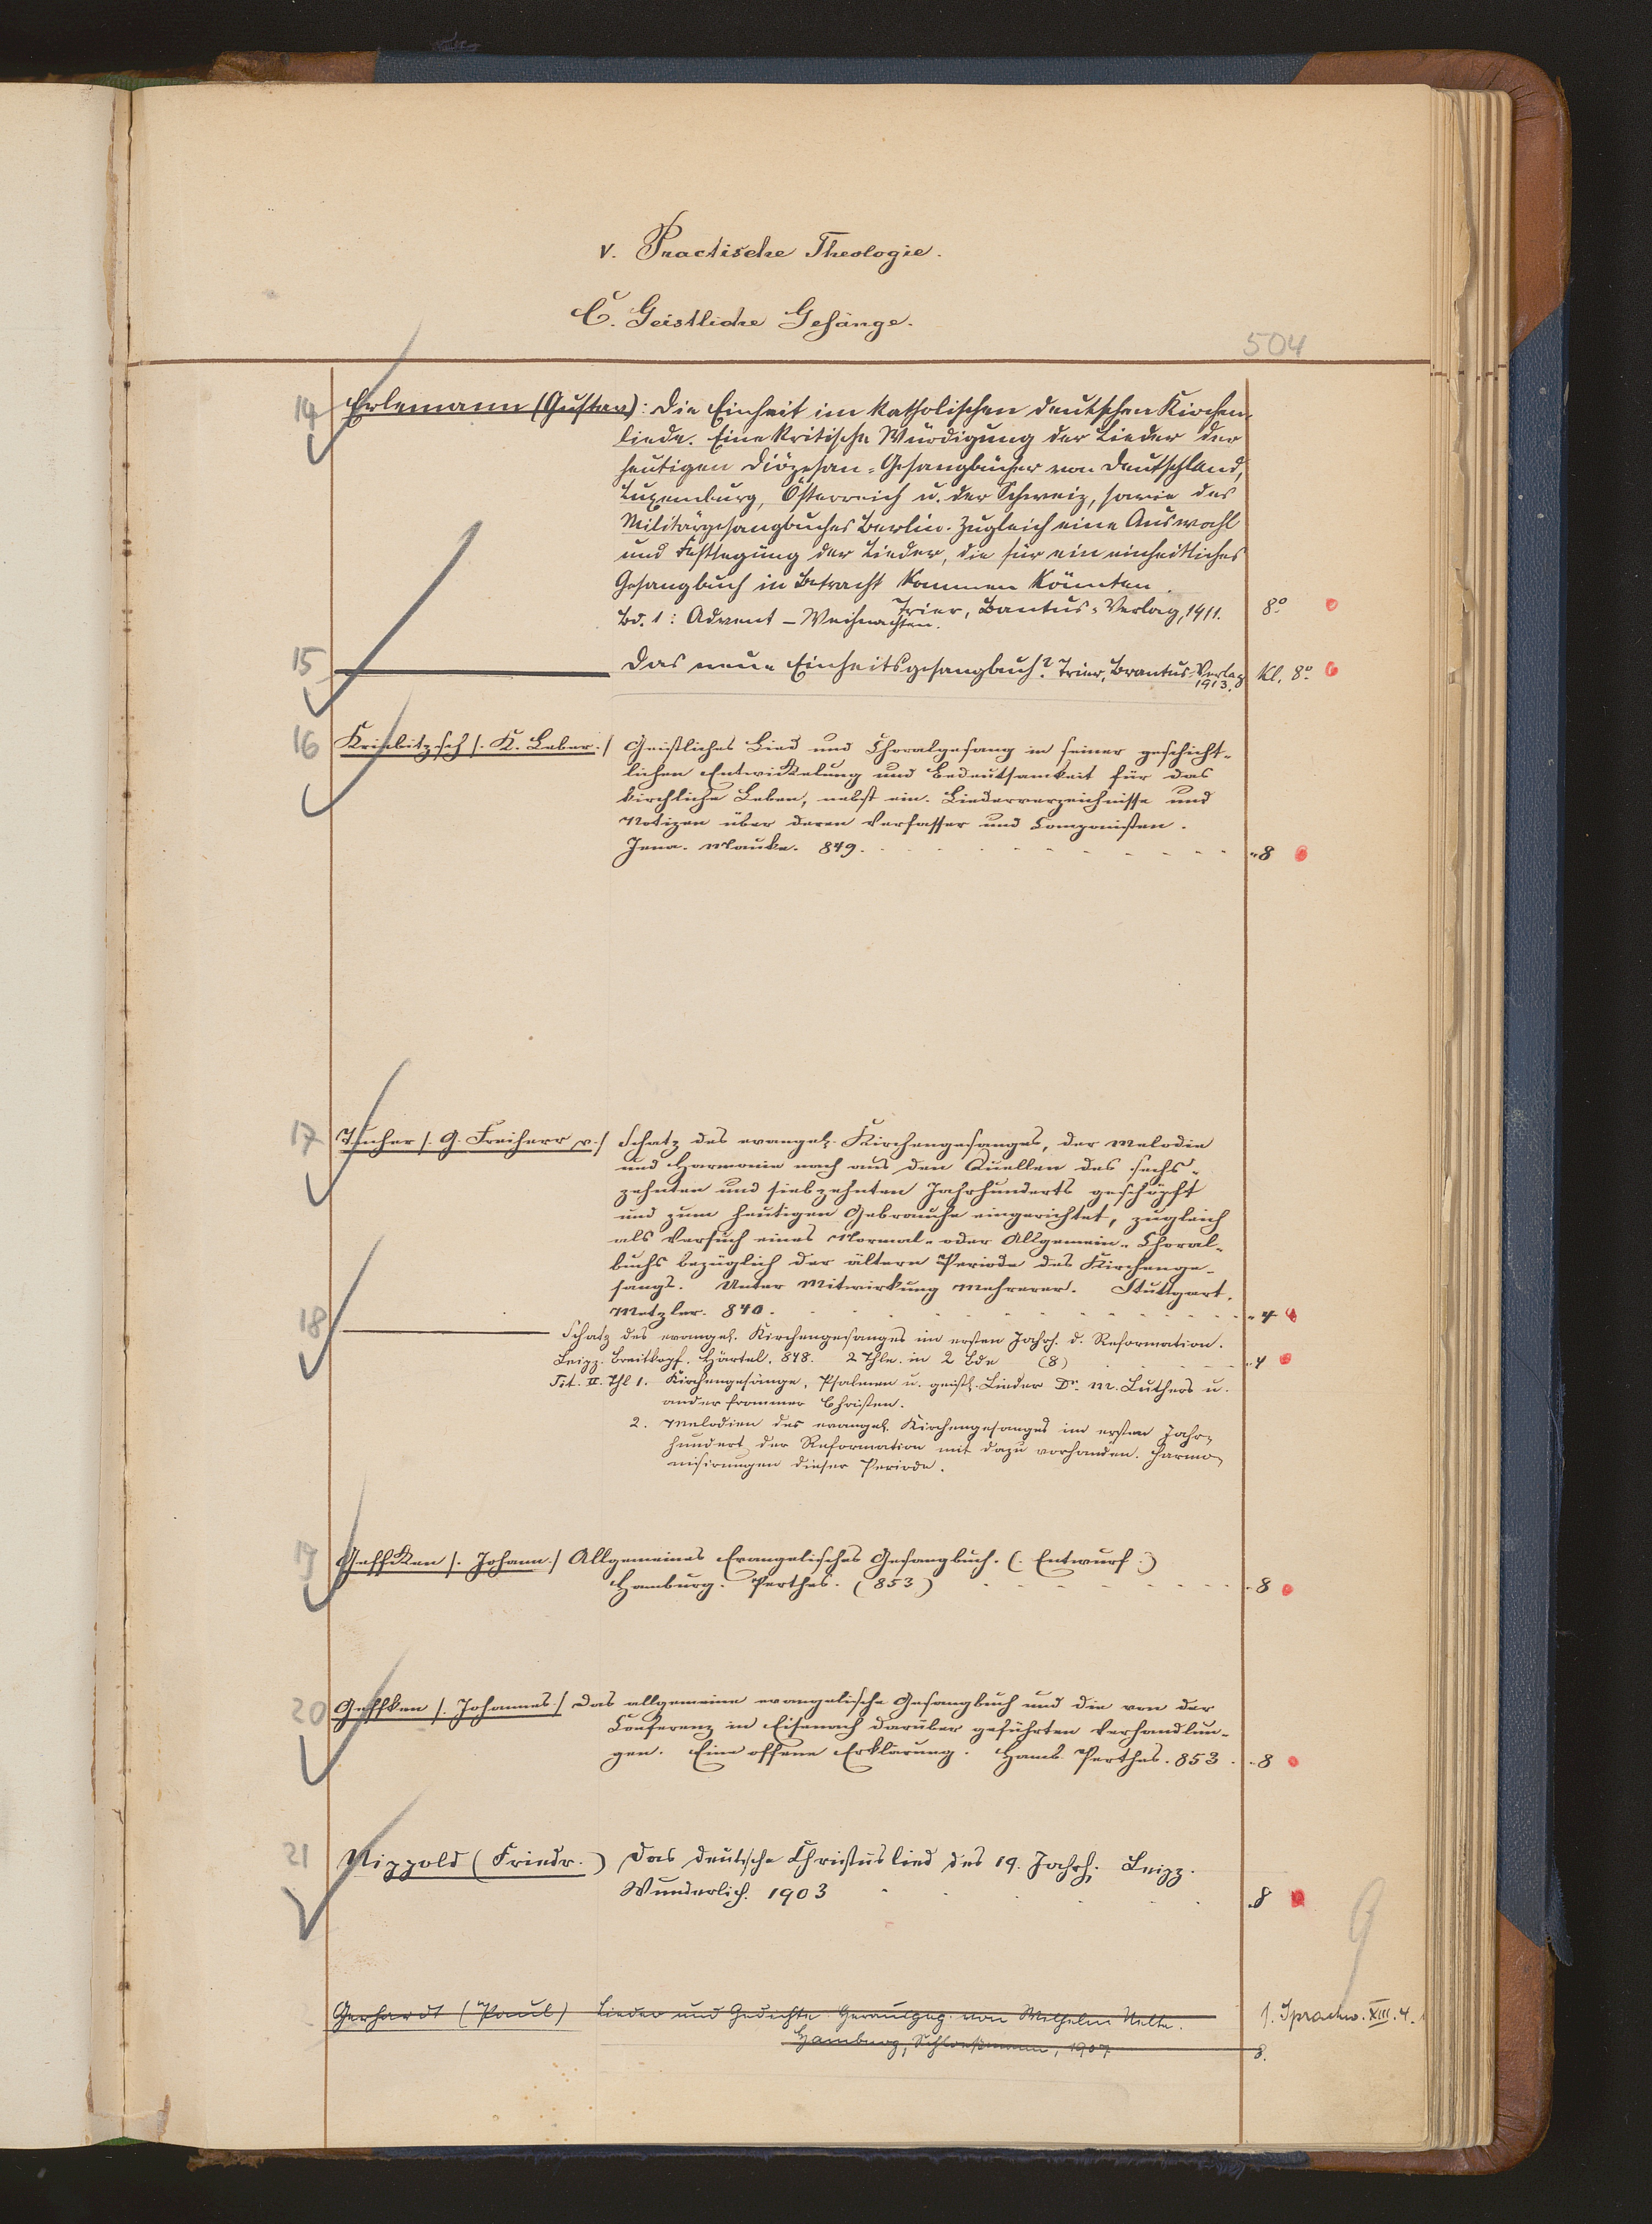 V. Practische Theologie.
C. Geistliche Gesänge.
504
14 Erlemann (Gustav): Die Einheit im katholischen deutschen Kirchen-
liede. Eine kritische Würdigung der Lieder der
heutigen Diözesan-Gesangbücher von Deutschland,
Luxemburg, Österreich u. der Schweiz, sowie des
Militärgesangbuches Berlin. Zugleich eine Auswahl
und Festlegung der Lieder, die für ein einheitliches
Gesangbuch in Betracht kommen könnten.
Bd. 1: Advent – Weihnachten. Trier, Bantus-Verlag, 1911. 8°
15 Das neue Einheitsgesangbuch? Trier, Brantus-Verlag 1913. Kl. 8°
16 Kriebitzsch /. K. Leber. / Geistliches Lied und Choralgesang in seiner geschicht-
lichen Entwickelung und Bedeutsamkeit für das
kirchliche Leben, nebst ein. Liederverzeichnisse und
Notizen über deren Verfasser und Componisten.
Jena. Mauke. 849. 8
17 Tucher /. G. Freiherr v. / Schatz des evangel. Kirchengesanges, der Melodie
und Harmonie nach aus den Quellen des sechs-
zehnten und siebzehnten Jahrhunderts geschöpft
und zum heutigen Gebrauche eingerichtet, zugleich
als Versuch eines Normal- oder Allgemein-Choral-
buchs bezüglich der ältern Periode des Kirchenge-
sangs. Unter Mitwirkung Mehrerer. Stuttgart.
Metzler. 840. 4
18 Schatz des evangel. Kirchengesanges im ersten Jahrh. d. Reformation.
Leipz. Breitkopf. Härtel. 848. 2 Thle. in 2 Bde (8) 4
Tit. II. Thl 1. Kirchengesänge, Psalmen u. geistl. Lieder Dr. M. Luthers u.
ander frommer Christen.
2. Melodien des evangel. Kirchengesanges im ersten Jahr-
hundert der Reformation mit dazu vorhanden. Harmo-
nisirungen dieser Periode.
19 Geffcken /. Johann. / Allgemeines Evangelisches Gesangbuch. (. Entwurf .)
Hamburg. Perthes. (853) 8
20 Geffken /. Johannes. / Das allgemeine evangelische Gesangbuch und die von der
Conferenz in Eisenach darüber geführten Verhandlun-
gen. Eine offene Erklärung. Hamb. Perthes. 853. 8
21 Nippold (Friedr.) Das deutsche Christuslied des 19. Jahrh. Leipz.
Wunderlich. 1903 8
9
Gerhardt (Paul) Lieder und Gedichte. Herausgeg. von Wilhelm Nelle. s. Sprachw. XIII. 4.
Hamburg, Schloeßmann, 1907 8.